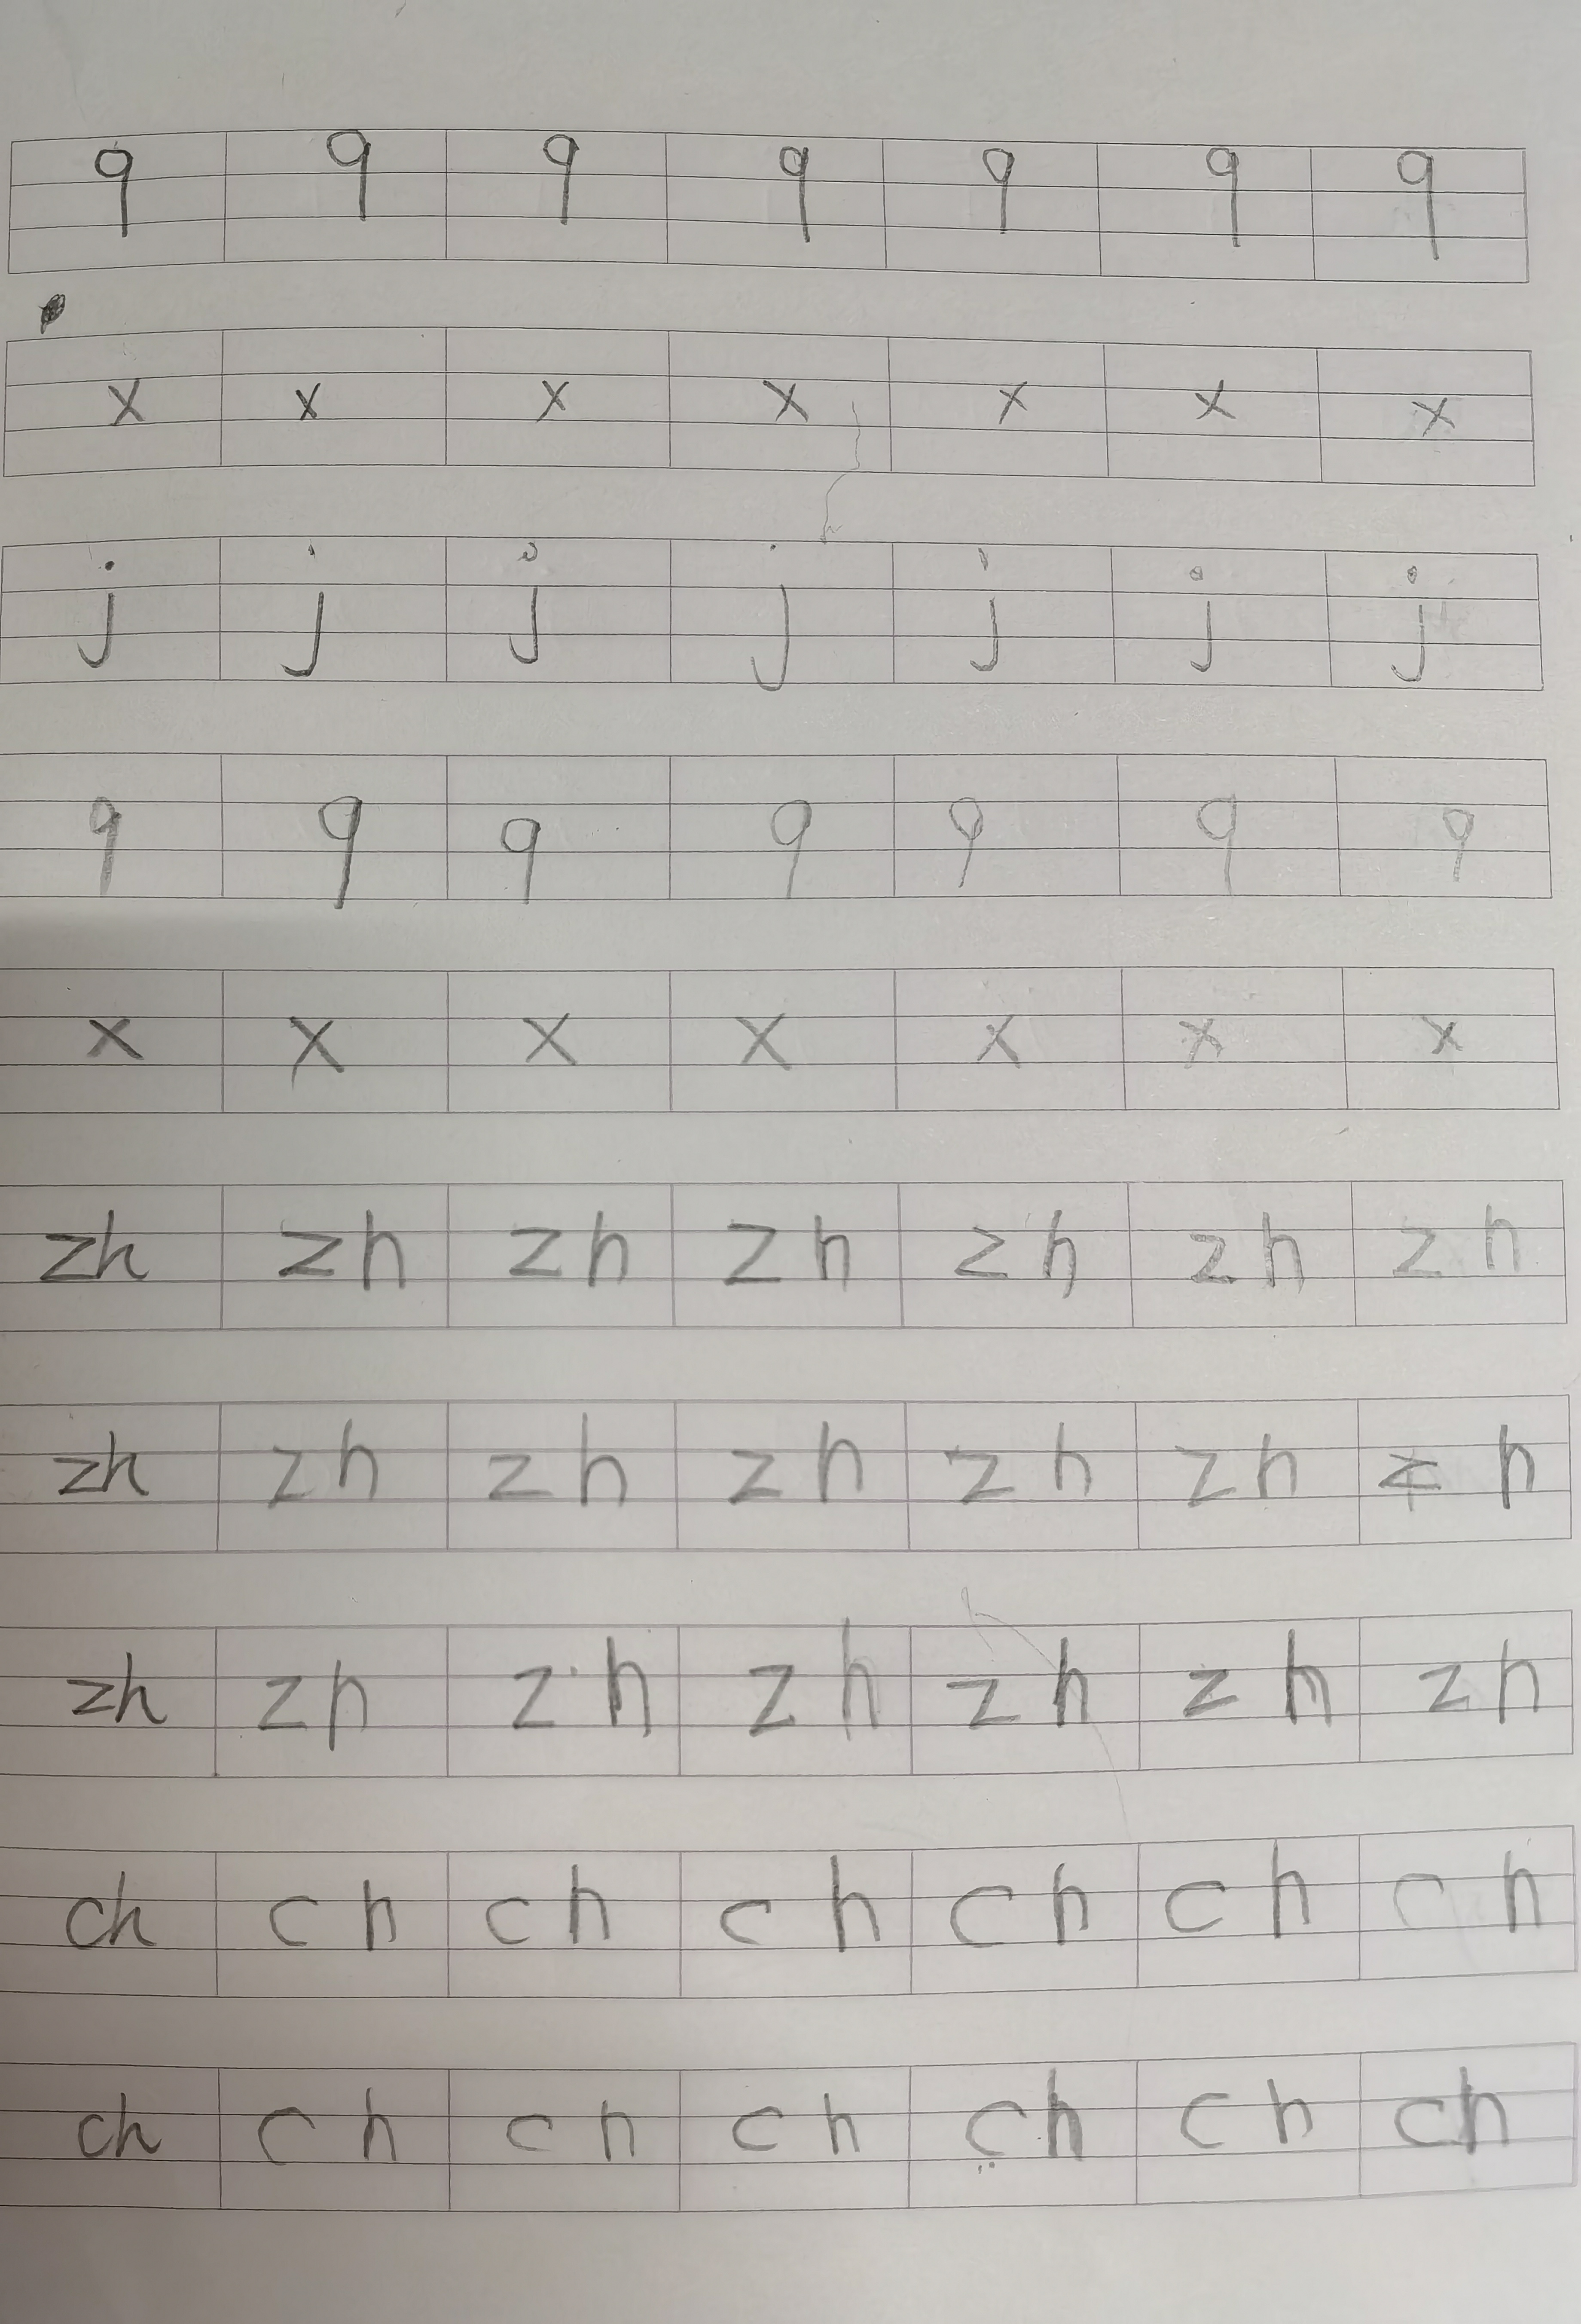 q q q q q q q
x x x x x x x
j j j j j j j
q q q q q q q
x x x x x x x
zh zh zh zh zh zh zh
zh zh zh zh zh zh zh
zh zh zh zh zh zh zh
ch ch ch ch ch ch ch
ch ch ch ch ch ch ch